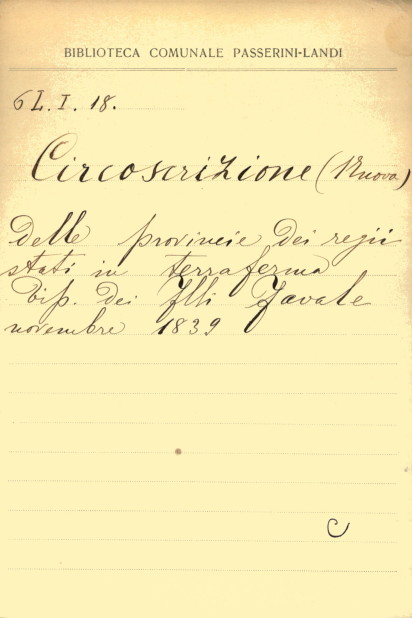 BIBLIOTECA COMUNALE PASSERINI-LANDI
6L.I.18.
Circoscrizione (Nuova)
delle provincie dei regii
stati in terraferma
Tip. dei flli Favale
novembre 1839
C